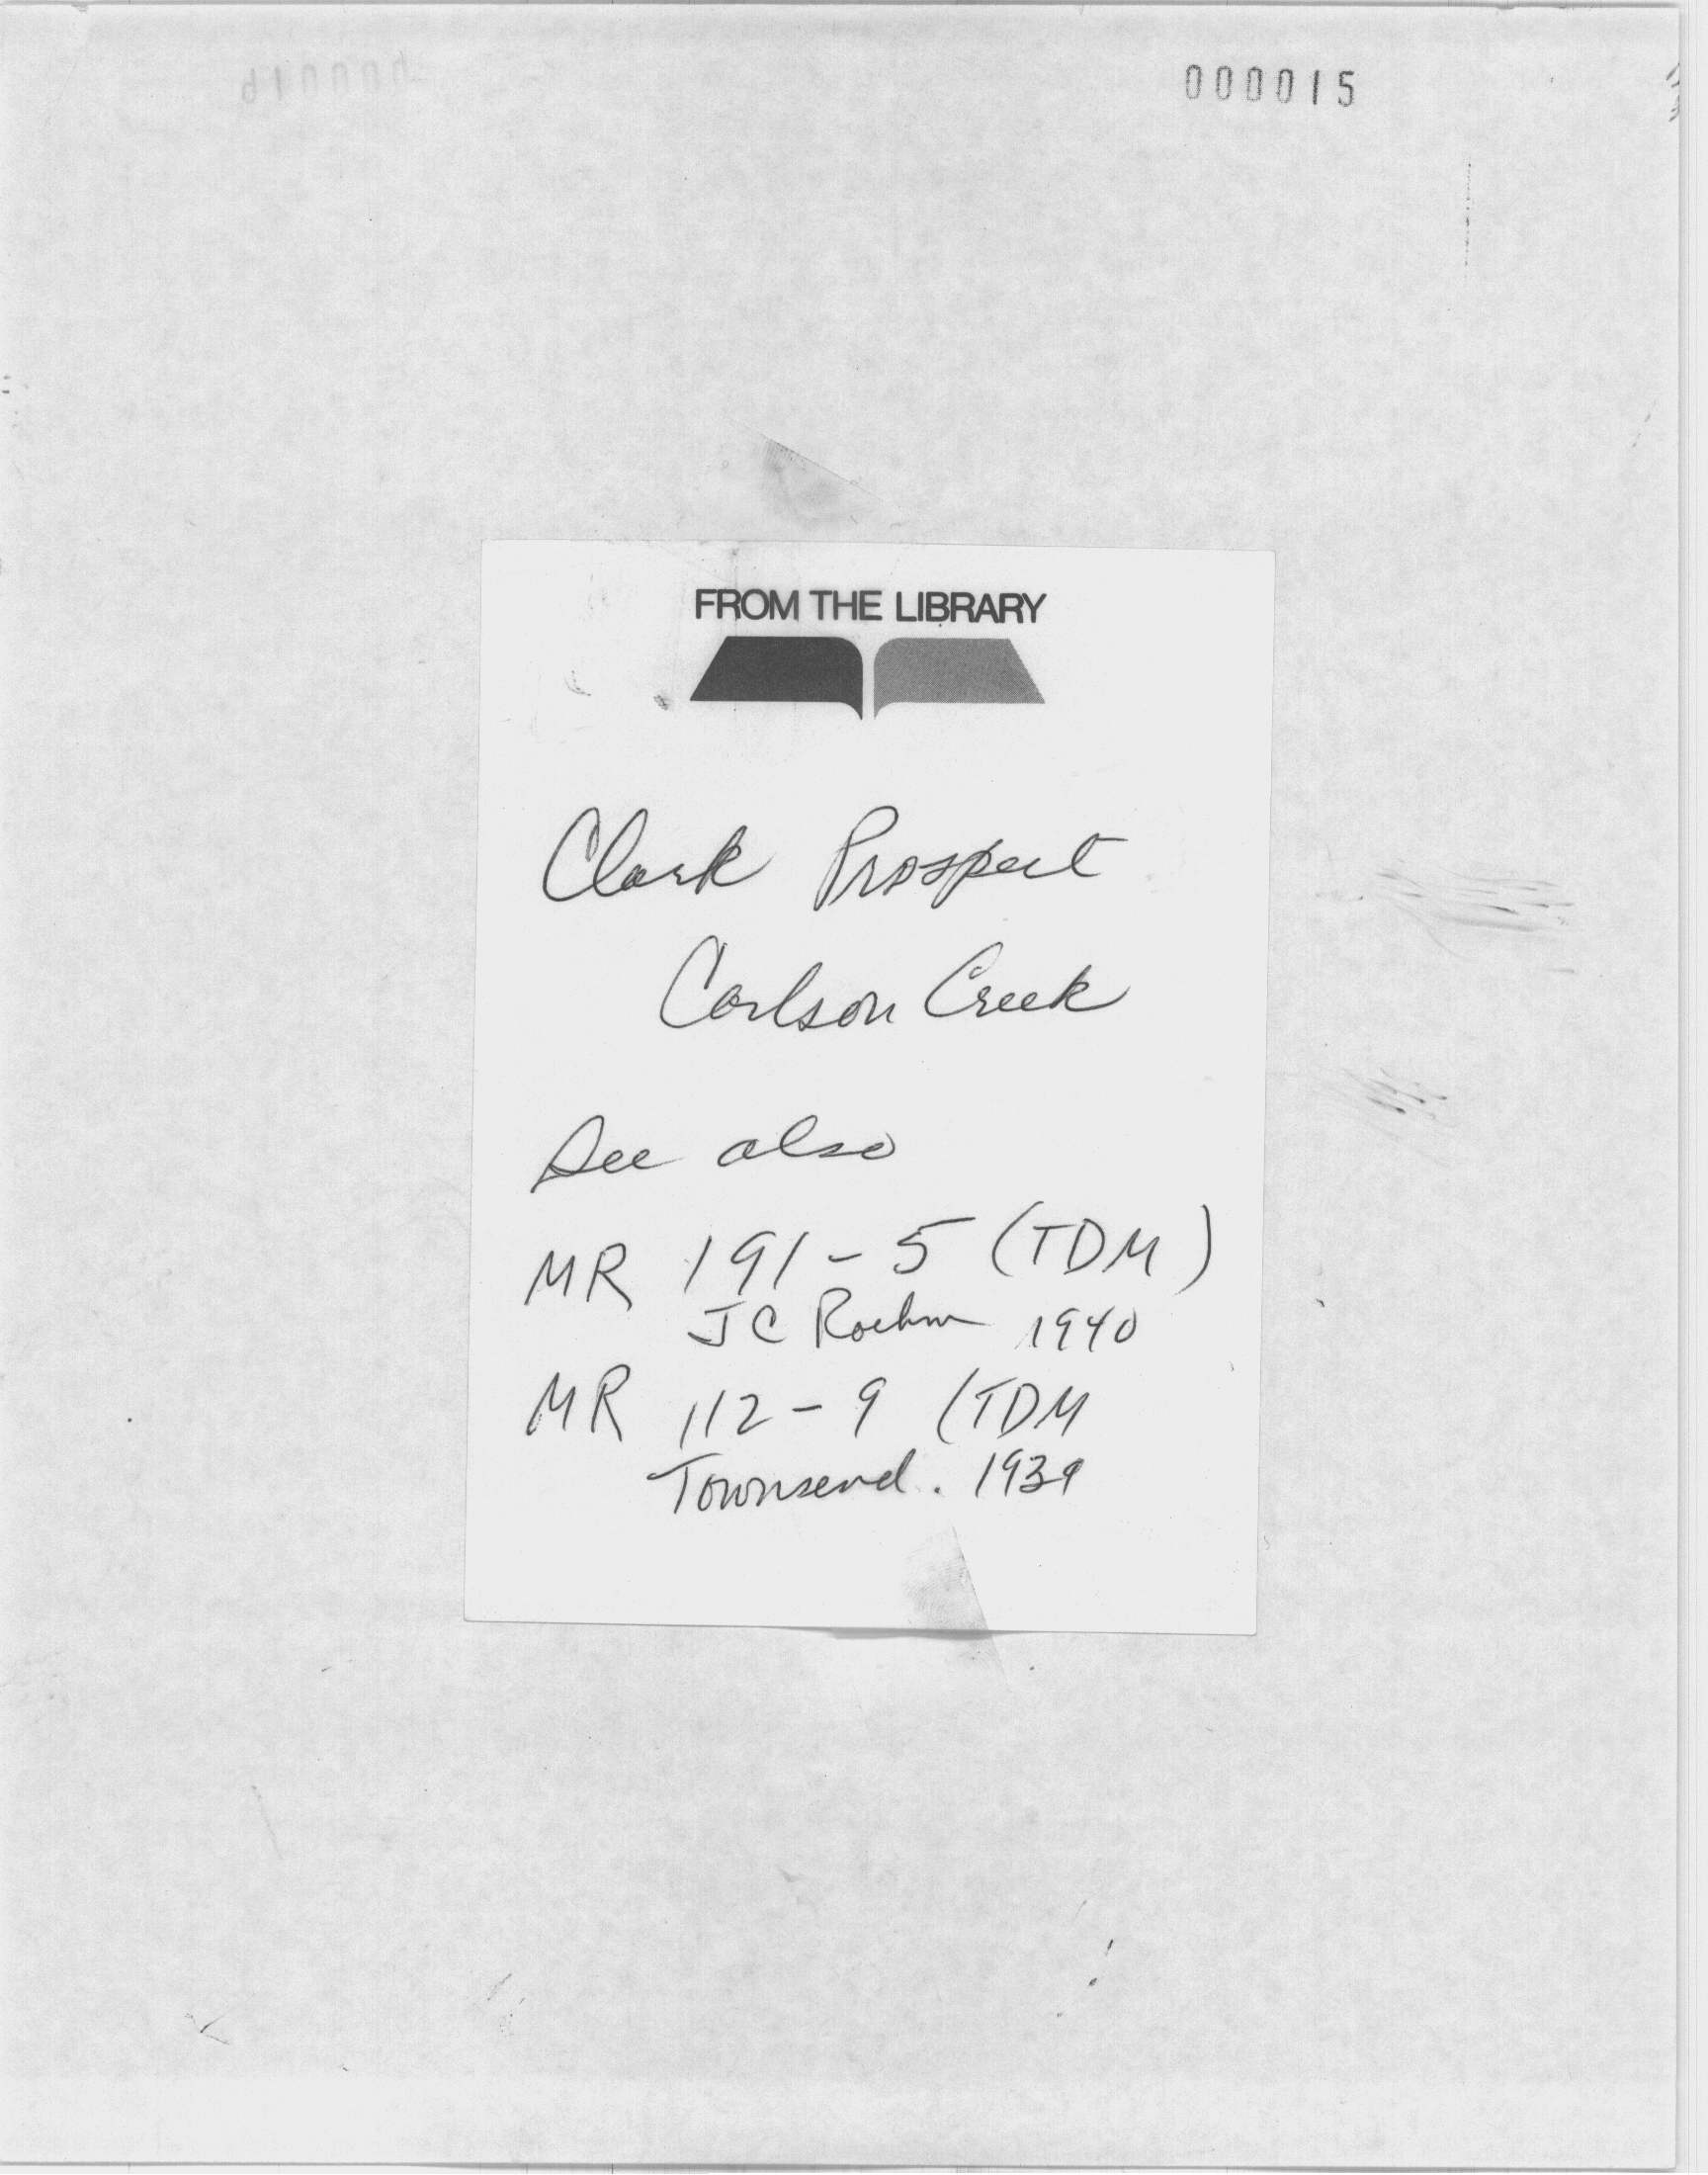 000015
FROM THE LIBRARY
Clark Prospect
Carlson Creek
See also
MR 191-5 (TDM)
JC Roehm 1940
MR 112-9 (TDM
Townsend. 1939